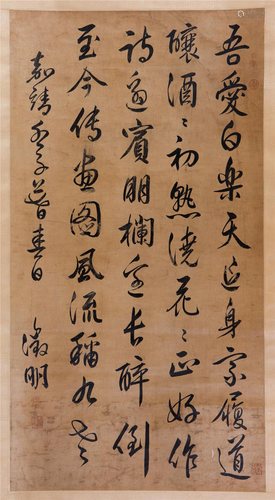 吾愛白樂天退身家履道
釀酒々初熟澆花々正好作
詩邀賓朋欄邊長醉倒
至今傳畫圖風流稱九老
嘉靖子暮春日
徵明